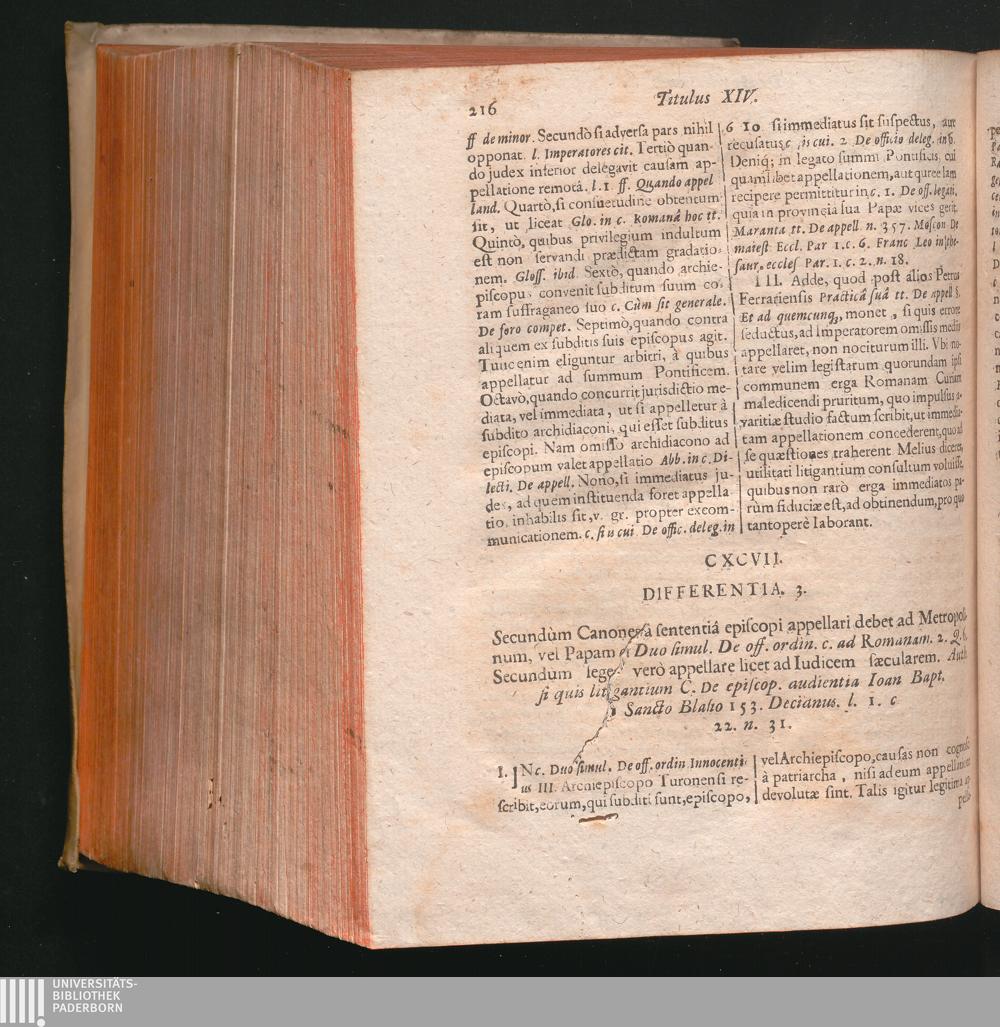 216
Titulus XIV.
ff de minor. Secundò si adversa pars nihil
opponat. l. Imperatores cit. Tertiò quan-
do judex inferior delegavit causam ap-
pellatione remotâ. l. 1 ff. Quando appel
land. Quartò, si consuetudine obtentum
sit, ut liceat Glo. in c. Romanâ hoc tt.
Quintò, quibus privilegium indultum
est non servandi prædictam gradatio-
nem. Gloss. ibid. Sextò, quando archie-
piscopus convenit subditum suum co-
ram suffraganeo suo c. Cùm sit generale.
De foro compet. Septimò, quando contra
aliquem ex subditis suis episcopus agit.
Tunc enim eliguntur arbitri, à quibus
appellatur ad summum Pontificem.
Octavò, quando concurrit jurisdictio me-
diata, vel immediata, ut si appelletur à
subdito archidiaconi, qui esset subditus
episcopi. Nam omisso archidiacono ad
episcopum valet appellatio Abb. in c. Di-
lecti. De appell. Nonò, si immediatus ju-
dex, ad quem instituenda foret appella-
tio, inhabilis sit, v. gr. propter excom-
municationem. c. si is cui De offic. deleg. in
6 10 si immediatus sit suspectus, aut
recusatus c. is cui. 2 De officio deleg. in 6.
Deniq; in legato summi Pontificis, cui
quamlibet appellationem, aut querelam
recipere permittitur in c. 1. De off. legati,
quia in provincia sua Papæ vices gerit.
Maranta tt. De appell. n. 357. Moscon De
maiest Eccl. Par 1. c. 6. Franc Leo in the-
saur. eccles Par. 1. c. 2. n. 18.
III. Adde, quod post alios Petrus
Ferrariensis Practicâ suâ tt. De appell §.
Et ad quemcunq;, monet, si quis errore
seductus, ad Imperatorem omissis mediis
appellaret, non nociturum illi. Vbi no-
tare velim legistarum quorundam ipsi
communem erga Romanam Curiam
maledicendi pruritum, quo impulsus a-
varitiæ studio factum scribit, ut immedia-
tam appellationem concederent, quo ad
se quæstiones traherent. Melius diceret,
utilitati litigantium consultum voluisse,
quibus non rarò erga immediatos pa-
rùm fiduciæ est, ad obtinendum, pro quo
tantoperè laborant.
CXCVII.
DIFFERENTIA. 3.
Secundùm Canones à sententiâ episcopi appellari debet ad Metropoli-
num, vel Papam c. Duo simul. De off. ordin. c. ad Romanam. 2. Q. 6.
Secundum leges verò appellare licet ad Iudicem sæcularem. Auth
si quis litigantium C. De episcop. audientia Ioan Bapt.
Sancto Blasio 153. Decianus. l. 1. c
22. n. 31.
I. IN c. Duo simul. De off. ordin Innocenti-
us III. Archiepiscopo Turonensi re-
scribit, eorum, qui subditi sunt, episcopo,
vel Archiepiscopo, causas non cognosci
à patriarcha, nisi ad eum appellatione
devolutæ sint. Talis igitur legitima ap-
pella-
UNIVERSITÄTS-
BIBLIOTHEK
PADERBORN